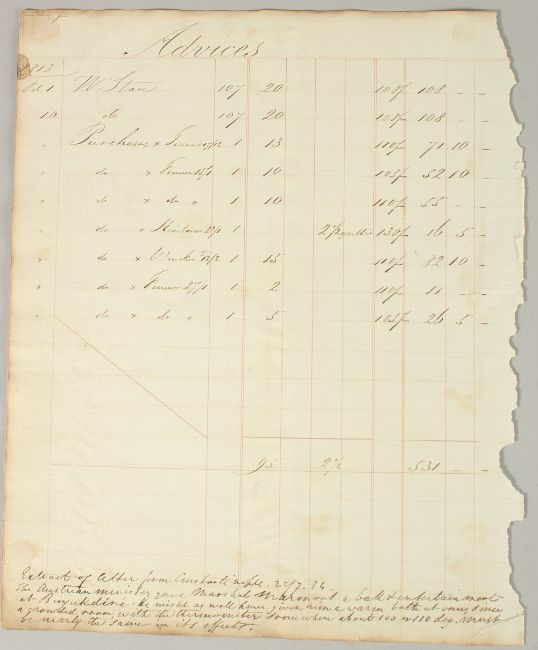 Advices
1813
Oct 1 W Starr 107 20 108/ 108 - -
10 do 107 20 108/ 108 - -
" Purchases x 1 13 110/ 71 10 -
" do x 1 10 105/ 52 10 -
" do x do " 1 10 110/ 55 - -
" do x 1 2 1/2 130/ 16 5 -
" do x 1 15 110/ 82 10 -
" do x 1 2 110/ 11 - -
" do x do " 1 5 105/ 26 5 -
95 2 1/2 531 - -
Extract of letter from Constantinople. 22/7. 36.
The Austrian minister gave Marshal Marmont a ball & entertainment
at Buyukdére. He might as well have given him a warm bath at once, since
a crowded room with the thermometer somewhere about 100 or 110 deg. must
be nearly the same in its effects.